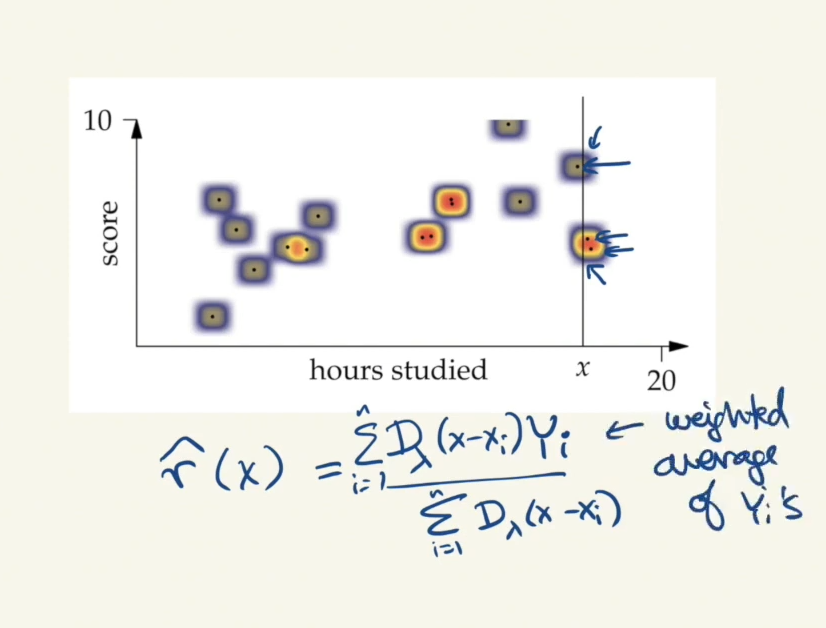 10
score
hours studied
x
20
r̂(x) = Σⁿᵢ₌₁ D_λ(x-xᵢ)Yᵢ / Σⁿᵢ₌₁ D_λ(x-xᵢ)
← weighted
average
of Yᵢ's